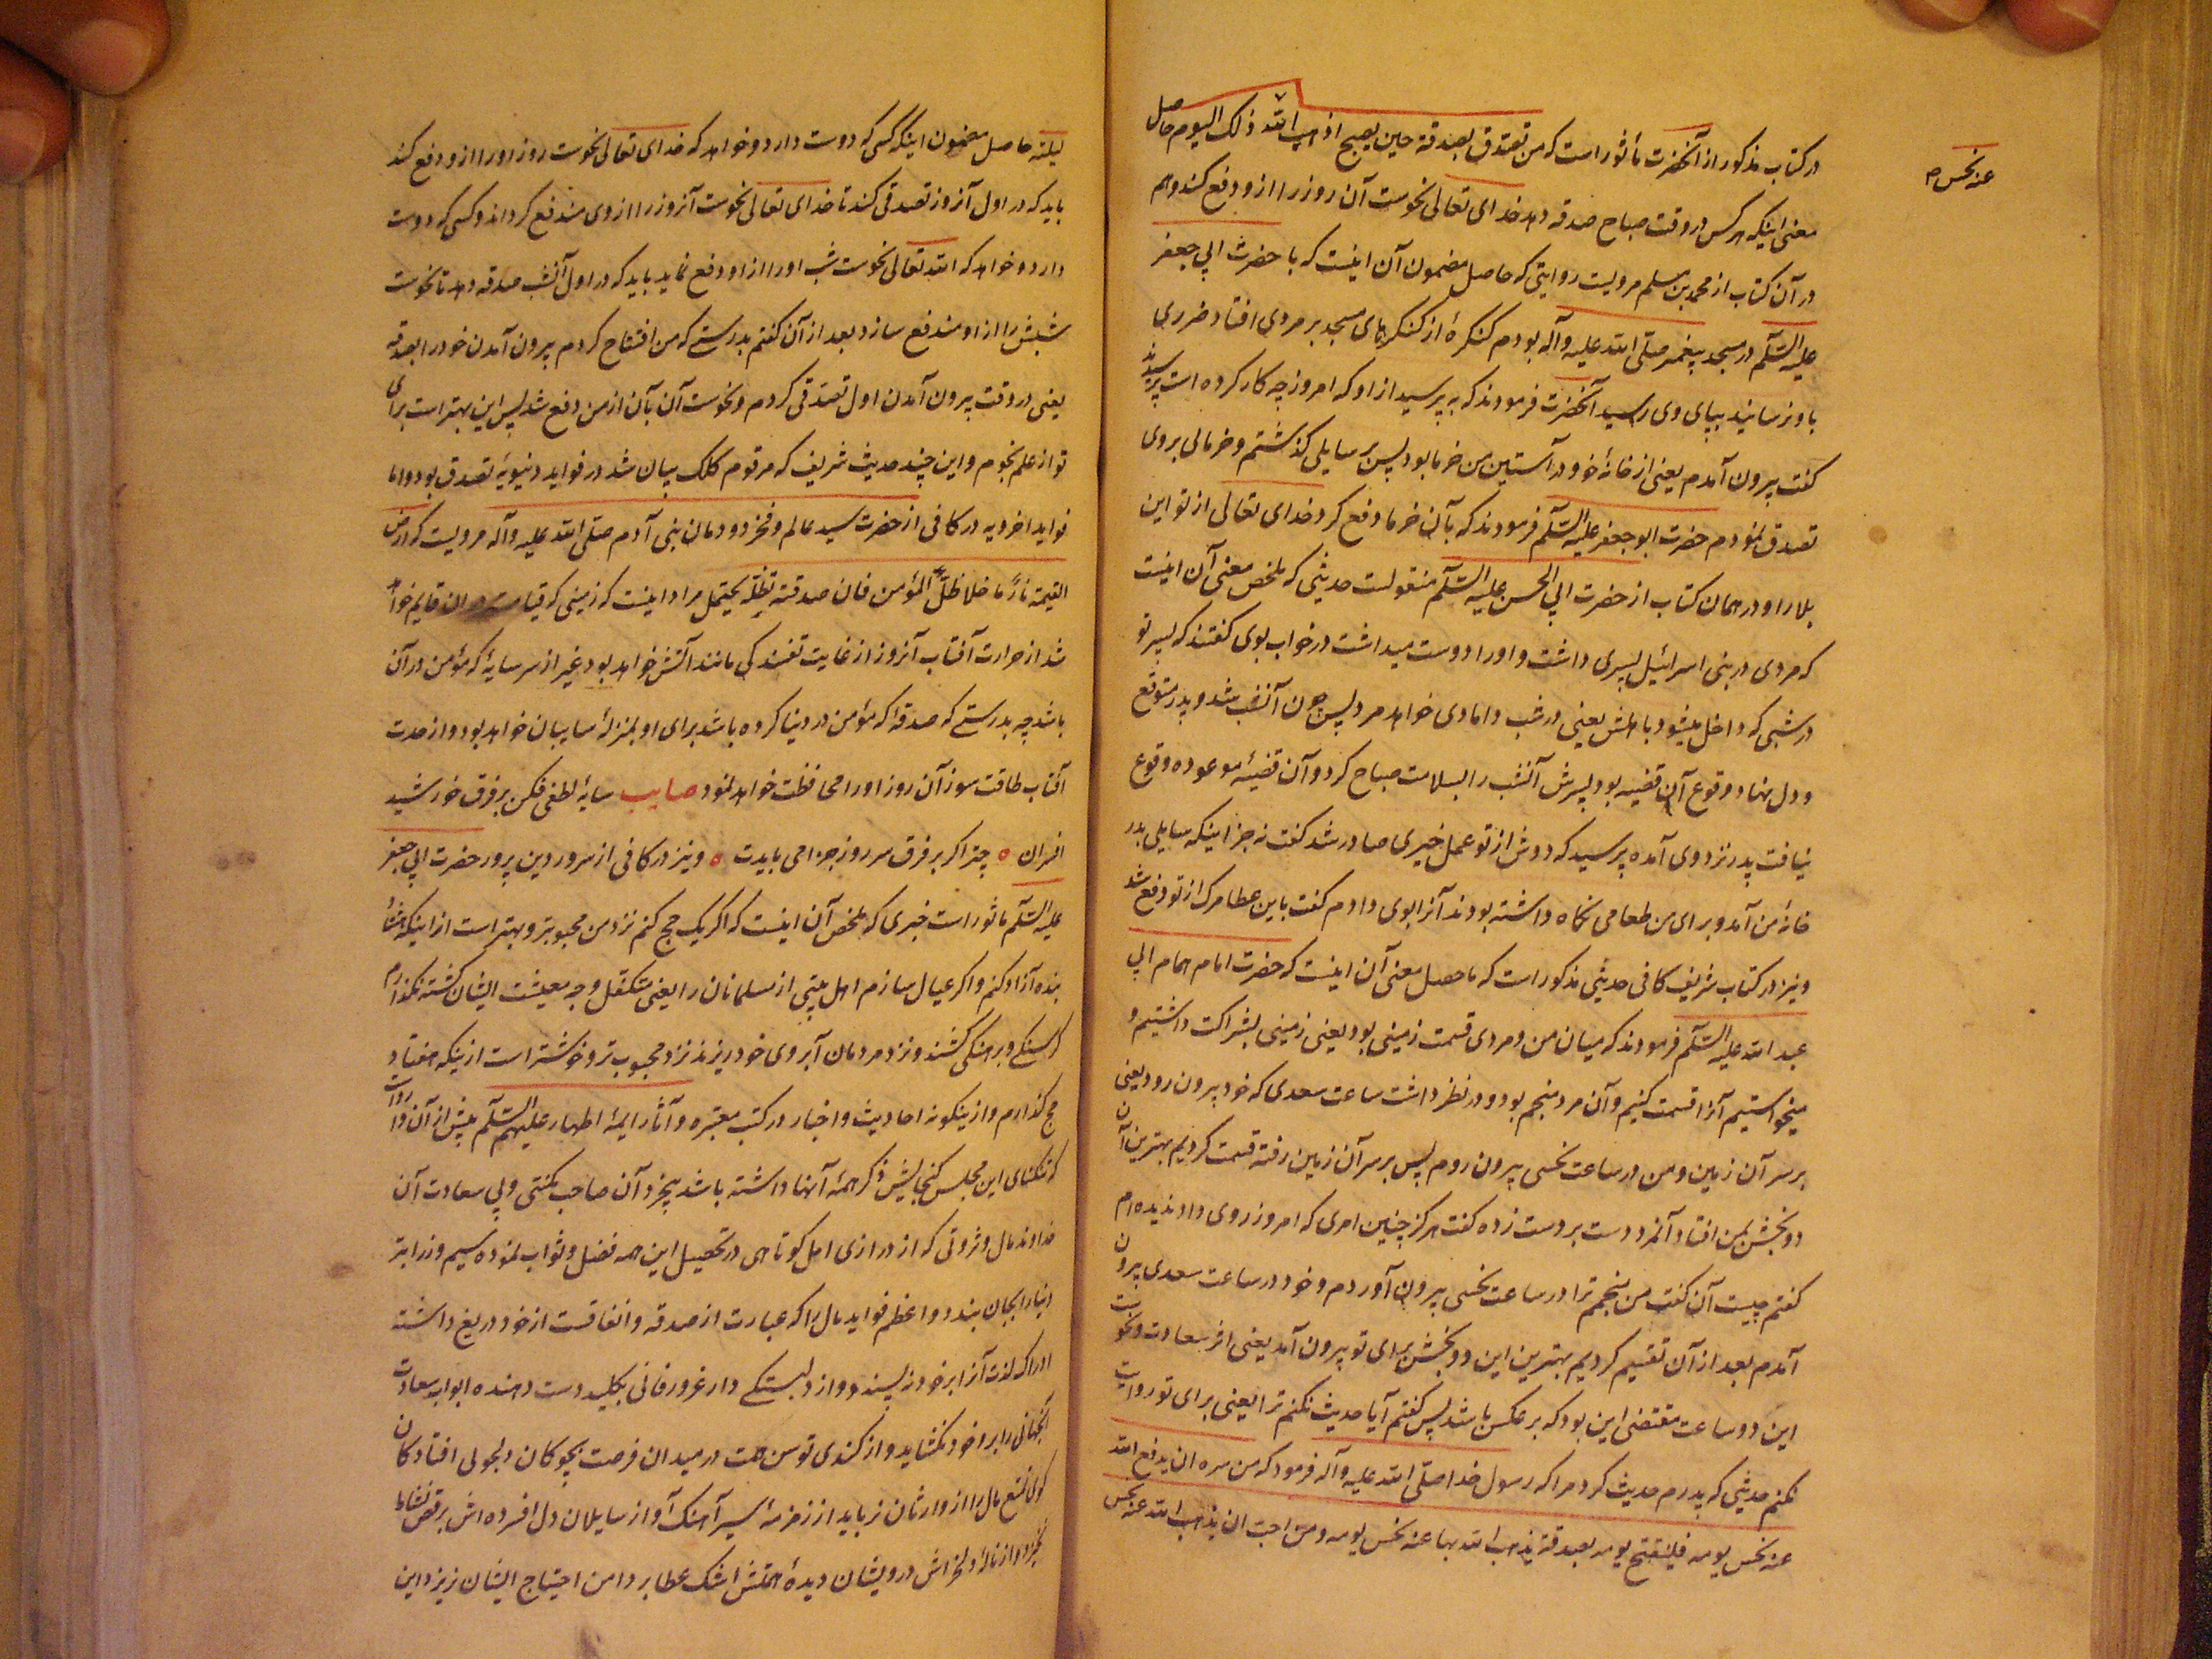 در کتاب مذکور از آنحضرت مأثور است که من تصدق بصدقة حین یصبح اذهب الله ذلک الیوم حاصل
عنه نحس م
معنی اینکه هر کس در وقت صباح صدقه دهد خدای تعالی نحوست آن روز را ازو دفع کند و هم
در آن کتاب از محمد بن مسلم مرویست روایتی که حاصل مضمون آن اینست که با حضرت ابی جعفر
علیه السّلم در مسجد پیغمبر صلّی الله علیه وآله بودم کنگرۀ از کنگرهای مسجد بر مردی افتاد ضرری
باو نرسانید بپای وی رسید آنحضرت فرمودند که به پرسید از او که امروز چه کار کرده است پرسیدند
گفت بیرون آمدم یعنی از خانۀ خود و در آستین من خرما بود پس بر سایلی گذشتم و خرمائی بروی
تصدق نمودم حضرت ابو جعفر علیه السّلم فرمودند که بآن خرما دفع کرد خدای تعالی از تو این
بلا را و در همان کتاب از حضرت ابی الحسن علیه السّلم منقولست حدیثی که ملخص معنی آن اینست
که مردی در بنی اسرائیل پسری داشت و او را دوست میداشت در خواب بوی گفتند که پسر تو
در شبی که داخل میشود باهلش یعنی در شب دامادی خواهد مرد پس چون آنشب شد و پدر متوقع
و دل نهاد وقوع آن قضیه بود پسرش آنشب را بسلامت صباح کرد و آن قضیۀ موعوده وقوع
نیافت پدر نزد وی آمده پرسید که دوش از تو عمل خیری صادر شد گفت نه جز اینکه سایلی بدر
خانۀ من آمد و برای من طعامی نگاه داشته بودند آنرا بوی دادم گفت باین عطا مرگ از تو دفع شد
و نیز در کتاب شریف کافی حدیثی مذکور است که ماحصل معنی آن اینست که حضرت امام همام ابی
عبد الله علیه السّلم فرمودند که میان من و مردی قسمت زمینی بود یعنی زمینی بشراکت داشتیم و
میخواستیم آنرا قسمت کنیم و آن مرد منجم بود و در نظر داشت ساعت سعدی که خود بیرون رود یعنی
بر سر آن زمین و من در ساعت نحسی بیرون روم پس بر سر آن زمین رفته قسمت کردیم بهترین آن
دو بخش بمن افتاد آنمرد دست بر دست زده گفت هرگز چنین امری که امروز روی داد ندیده‌ام
گفتم چیست آن گفت من منجمم ترا در ساعت نحسی بیرون آوردم و خود در ساعت سعدی بیرون
آمدم بعد از آن تقسیم کردیم بهترین این دو بخش برای تو بیرون آمد یعنی اثر سعادت و نحوست
این دو ساعت مقتضی این بود که بر عکس باشد پس گفتم آیا حدیث نکنم ترا یعنی برای تو روایت
نکنم حدیثی که پدرم حدیث کرد مرا که رسول خدا صلّی الله علیه وآله فرمود که من سره ان یدفع الله
عنه نحس یومه فلیفتتح یومه بصدقة یذهب الله بها عنه نحس یومه ومن احب ان یذهب الله عنه نحس
لیلته حاصل مضمون اینکه کسی که دوست دارد و خواهد که خدای تعالی نحوست روز او را ازو دفع کند
باید که در اول آنروز تصدقی کند تا خدای تعالی نحوست آنروز را از وی مندفع گرداند و کسی که دوست
دارد و خواهد که الله تعالی نحوست شب او را از او دفع نماید باید که در اول آنشب صدقه دهد تا نحوست
شبش را از او مندفع سازد بعد از آن گفتم بدرستی که من افتتاح کردم بیرون آمدن خود را بصدقه
یعنی در وقت بیرون آمدن اول تصدقی کردم و نحوست آن بآن از من دفع شد پس این بهتر است برای
تو از علم نجوم و این چند حدیث شریف که مرقوم کلک بیان شد در فواید دنیویۀ تصدق بود و اما
فواید اخرویه در کافی از حضرت سید عالم و فخر دودمان بنی آدم صلّی الله علیه وآله مرویست که ارض
القیمة نار ما خلا ظلّ المؤمن فان صدقته تظلّه یحتمل مراد اینست که زمینی که قیامت در آن قایم خواهد
شد از حرارت آفتاب آنروز از غایت تفسندگی مانند آتش خواهد بود غیر از سر سایۀ که مؤمن در آن
باشد چه بدرستی که صدقۀ که مؤمن در دنیا کرده باشد برای او بمنزلۀ سایبان خواهد بود و از حدت
آفتاب طاقت سوز آن روز او را محافظت خواهد نمود صایب سایۀ لطفی فکن بر فرق خورشید
افسران ه چتر اگر بر فرق سر روز جزا می بایدت ه و نیز در کافی از سرور دین پرور حضرت ابی جعفر
علیه السّلم ماثور است خبری که ملخص آن اینست که اگر یک حج کنم نزد من محبوبتر و بهتر است از اینکه هفتاد
بنده آزاد کنم و اگر عیال سازم اهل بیتی از مسلمانان را یعنی متکفل وجه معیشت ایشان گشته نگذارم
گرسنگی و برهنگی کشند و نزد مردمان آبروی خود ریزند نزد محبوب تر و خوشتر است ازینکه هفتاد
حج گذارم و ازینگونه احادیث و اخبار در کتب معتبره و آثار ایمۀ اطهار علیهم السّلم بیش از آن وارد است
که تنگنای این مجلس گنجایش ذکر همۀ آنها داشته باشد بیخرد آن صاحب مکنتی و بی سعادت آن
خداوند مال و ثروتی که از درازی امل کوتاهی در تحصیل این همه فضل و ثواب نموده سیم و زر ابتر
انبار بجان بندد و اعظم فواید مال را که عبارت از صدقه و انفاقست از خود دریغ داشته
ادراک لذت آنرا بر خود نپسندد و از دلبستگی دار غرور فانی بکلید دست دهنده ابواب سعادت
آنجهانی را بر رو خود نگشاید و از کندی توسن همت در میدان فرصت بچوکان دلجوئی افتادگان
گوی تمتع مال را از وارثان نرباید از زمزمۀ سیر آهنگ آواز سایلان دل افسرده اش برقص نشاط
نخیزد و از نالۀ دلخراش درویشان دیدۀ همتش اشک عطا بر دامن احتیاج ایشان نریزد این